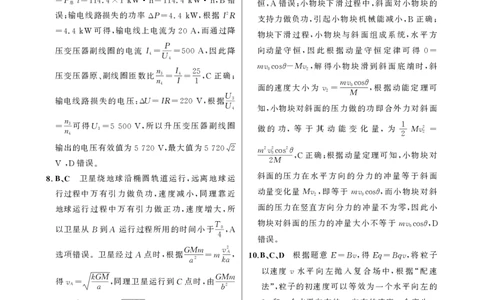 误;输电线路损失的功率 ΔP=4.4 kW,根据 I²R
=4.4 kW可得,输电线上电流为 20 A,而通过降
压变压器副线圈的电流 I₄=P/U₄=500 A,因此降
压变压器原、副线圈匝数比 n₃/n₄=I₄/I₃=25/1,C正确;
输电线路损失的电压:ΔU=IR=220 V,根据 U₂/U₁
=n₂/n₁ 可得U₂=5 500 V,所以升压变压器副线圈
输出的电压有效值为5 720 V,最大值为5 720√2
V ,D错误。
8.B、C 卫星绕地球沿椭圆轨道运行,远离地球运
行过程中万有引力做负功,速度减小,同理靠近
地球运行过程中万有引力做正功,速度增大,所
以卫星从 B到A 运行过程所用的时间小于T₀/4,A
选项错误。卫星经过A点时,根据GMm/a²=m v_A²/ka,
得 v_A=√kGM/a,同理卫星运行到C点时,由GMm/b²
恒,A错误;小物块下滑过程中,斜面对小物块的
支持力做负功,引起小物块机械能减小,B正确;
物块下滑过程,小物块与斜面组成系统,水平方
向动量守恒,因此根据动量守恒定律可得 0=
mv₀cosθ-Mv₂,解得小物块滑到斜面底端时,斜
面的速度大小为 v₂=mv₀cosθ/M,根据动能定理可
知,小物块对斜面的压力做的功即合外力对斜面
做的功,等于其动能变化量,为 1/2 Mv₂²=
m²v₀²cos²θ/2M,C正确;根据动量定理可知,小物块对
斜面的压力在水平方向的分力的冲量等于斜面
动量变化量Mv₂,即等于 mv₀cosθ,而小物块对斜
面的压力在竖直方向分力的冲量不为零,因此小
物块对斜面的压力的冲量大小不等于mv₀cosθ,D
错误。
10.B、C、D 根据题意 E=Bv,得 Eq=Bqv,将粒子
以速度 v 水平向左抛入复合场中,根据“配速
法”,粒子的初速度可以等效为一个水平向左的